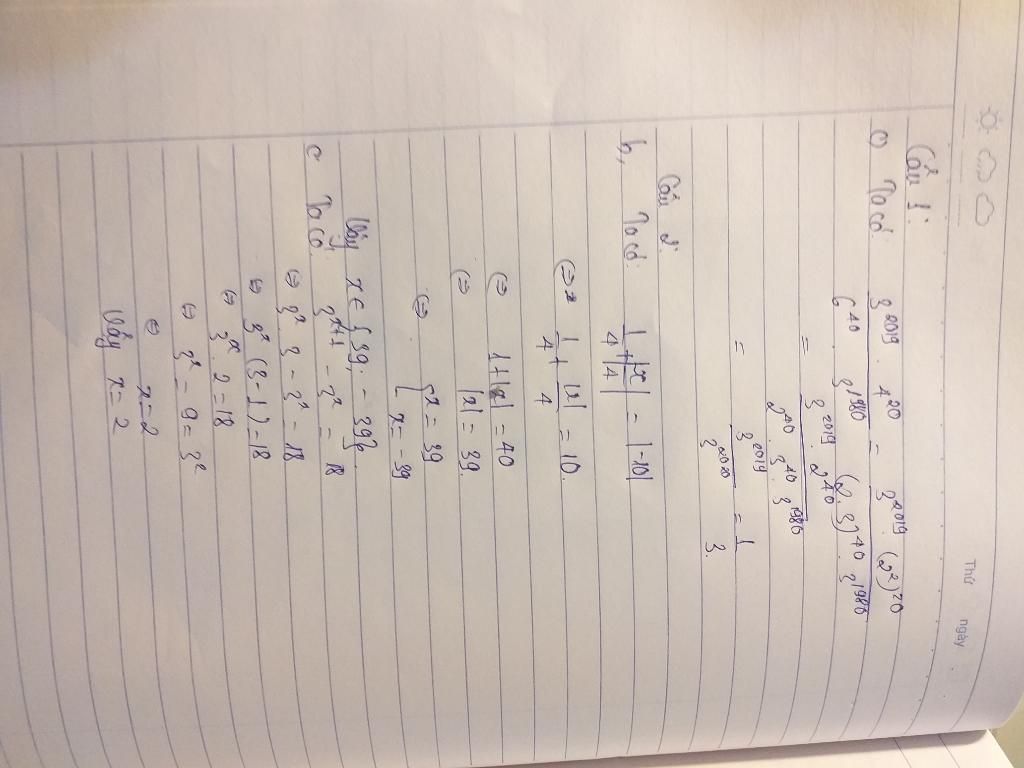 Thứ ngày
Câu 1:
c) Ta có: 3^2019 . 4^20 / 6^40 . 3^1980 = 3^2019 . (2^2)^20 / (2.3)^40 . 3^1980
= 3^2019 . 2^40 / 2^40 . 3^40 . 3^1980
= 3^2019 / 3^2020 = 1/3.
Câu 2:
b, Ta có: 1/4 + |x/4| = |-10|
⇔ 1/4 + |x|/4 = 10.
⇔ 1+|x| = 40
⇔ |x| = 39.
⇔ [ x = 39
x = -39
Vậy x ∈ {39; -39}.
c Ta có: 3^x+1 - 3^x = 18
⇔ 3^x . 3 - 3^x = 18
⇔ 3^x (3-1) = 18
⇔ 3^x . 2 = 18
⇔ 3^x = 9 = 3^2
⇔ x = 2
Vậy x = 2